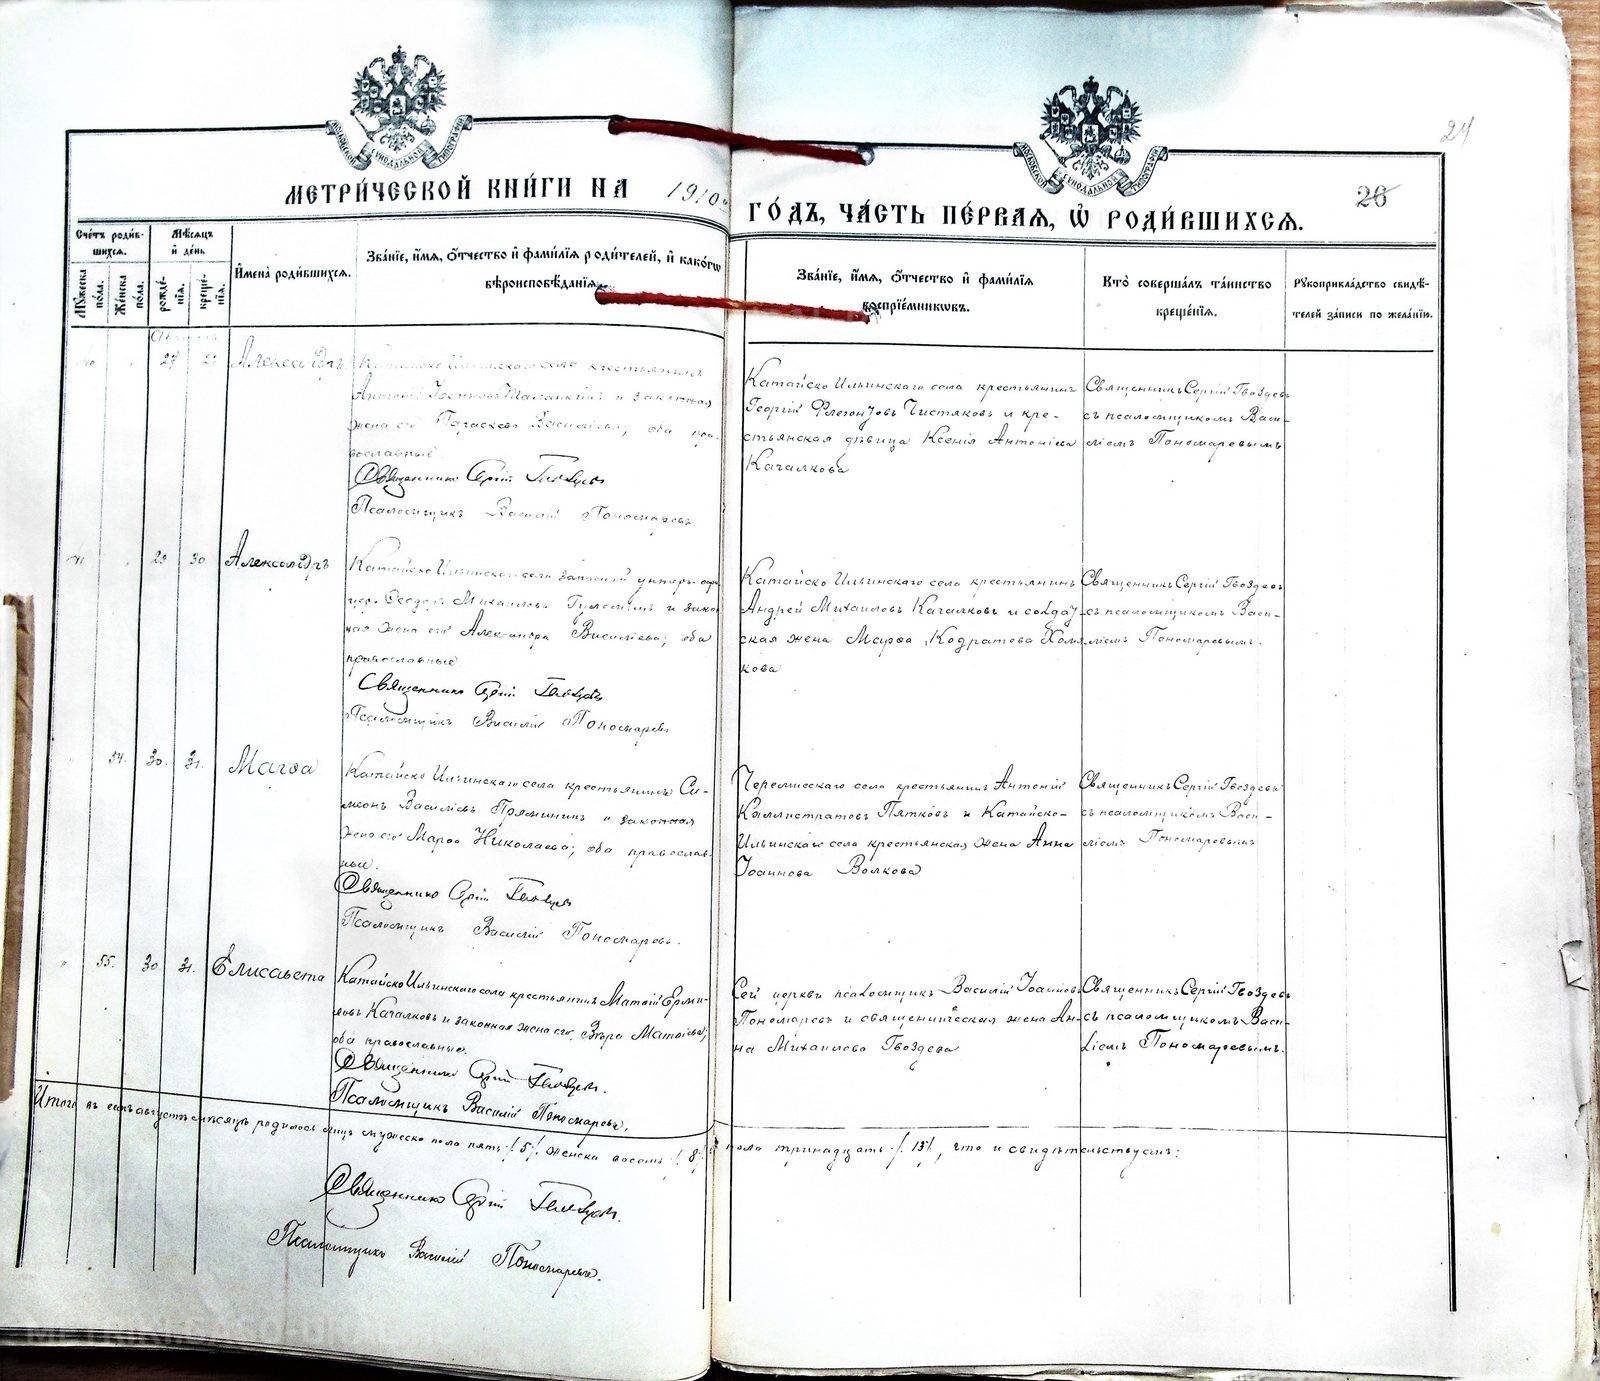 МЕТРИ́ЧЕСКОЙ КНИ́ГИ НА 1910 й
ГО́ДЪ, ЧА́СТЬ ПЕ́РВАЯ, Ѡ҆ РОДИ́ВШИХСЯ.
24
26
МОСКОВСКОЙ СѴНОДАЛЬНОЙ ТИПОГРАФІИ
МОСКОВСКОЙ СѴНОДАЛЬНОЙ ТИПОГРАФІИ
Сче́тъ роди́в-
шихся.
Му́жеска по́ла.
Же́нска по́ла.
Мѣ́сяцъ
и҆ де́нь
рожде́-
нїя.
креще́-
нїя.
И҆мена̀ роди́вшихся.
Зва́нїе, и҆́мя, ѻ҆́тчество и҆ фами́лїя роди́телей, и҆ како́гѡ
вѣроисповѣ́данїя.
Зва́нїе, и҆́мя, ѻ҆́тчество и҆ фами́лїя
воспрїе́мникѡвъ.
Кто̀ соверша́лъ та́инство
креще́нїя.
Рꙋкоприкла́дство свидѣ́-
телей за́писи по жела́нїю.
Августъ
40 27 Александръ
Катайско Ильинскаго села крестьянинъ
Антоній и законная
жена его Параскева Василіева; оба пра-
вославные
Священникъ Сергій Гвоздевъ
Псаломщикъ Василій Пономаревъ
Катайско Ильинскаго села крестьянинъ
Георгій Флегонтовъ Чистяковъ и кре-
стьянская дѣвица Ксенія Антоніева
Качалкова
Священникъ Сергій Гвоздевъ
съ псаломщикомъ Васи-
ліемъ Пономаревымъ
41 29 30 Александръ
Катайско Ильинскаго села запасный унтеръ-офи-
цер. Ѳеодоръ Михаиловъ и закон-
ная жена его Александра Василіева; оба
православные
Священникъ Сергій Гвоздевъ
Псаломщикъ Василій Пономаревъ
Катайско Ильинскаго села крестьянинъ
Андрей Михаиловъ Качалковъ и солдат-
ская жена Марѳа Кодратова Холм
кова
Священникъ Сергій Гвоздевъ
съ псаломщикомъ Васи-
ліемъ Пономаревымъ.
54. 30. 31. Марѳа
Катайско Ильинскаго села крестьянинъ Си-
меонъ Василіевъ Пряминин и законная
жена его Марѳа Николаева; оба православ-
ные.
Священникъ Сергій Гвоздевъ
Псаломщикъ Василій Пономаревъ.
Черемисскаго села крестьянинъ Антоній
Каллистратовъ Пятковъ и Катайско-
Ильинскаго села крестьянская жена Анна
Іоаннова Волкова
Священникъ Сергій Гвоздевъ
съ псаломщикомъ Васи-
ліемъ Пономаревымъ
55. 30 31. Елисавета
Катайско Ильинскаго села крестьянинъ Матѳій Ерми-
ловъ Качалковъ и законная жена его Вѣра Матѳіева;
оба православные.
Священникъ Сергій Гвоздевъ.
Псаломщикъ Василій Пономаревъ.
Сей церкви псаломщикъ Василій Іоанновъ
Пономаревъ и священническая жена Ан-
на Михаилова Гвоздева
Священникъ Сергій Гвоздевъ
съ псаломщикомъ Васи-
ліемъ Пономаревымъ.
Итого въ семъ августѣ мѣсяцѣ родилось лицъ мужеска пола пять /5/. женска восемь /8/ пола тринадцать /13/, что и свидѣтельствуемъ:
Священникъ Сергій Гвоздевъ.
Псаломщикъ Василій Пономаревъ.